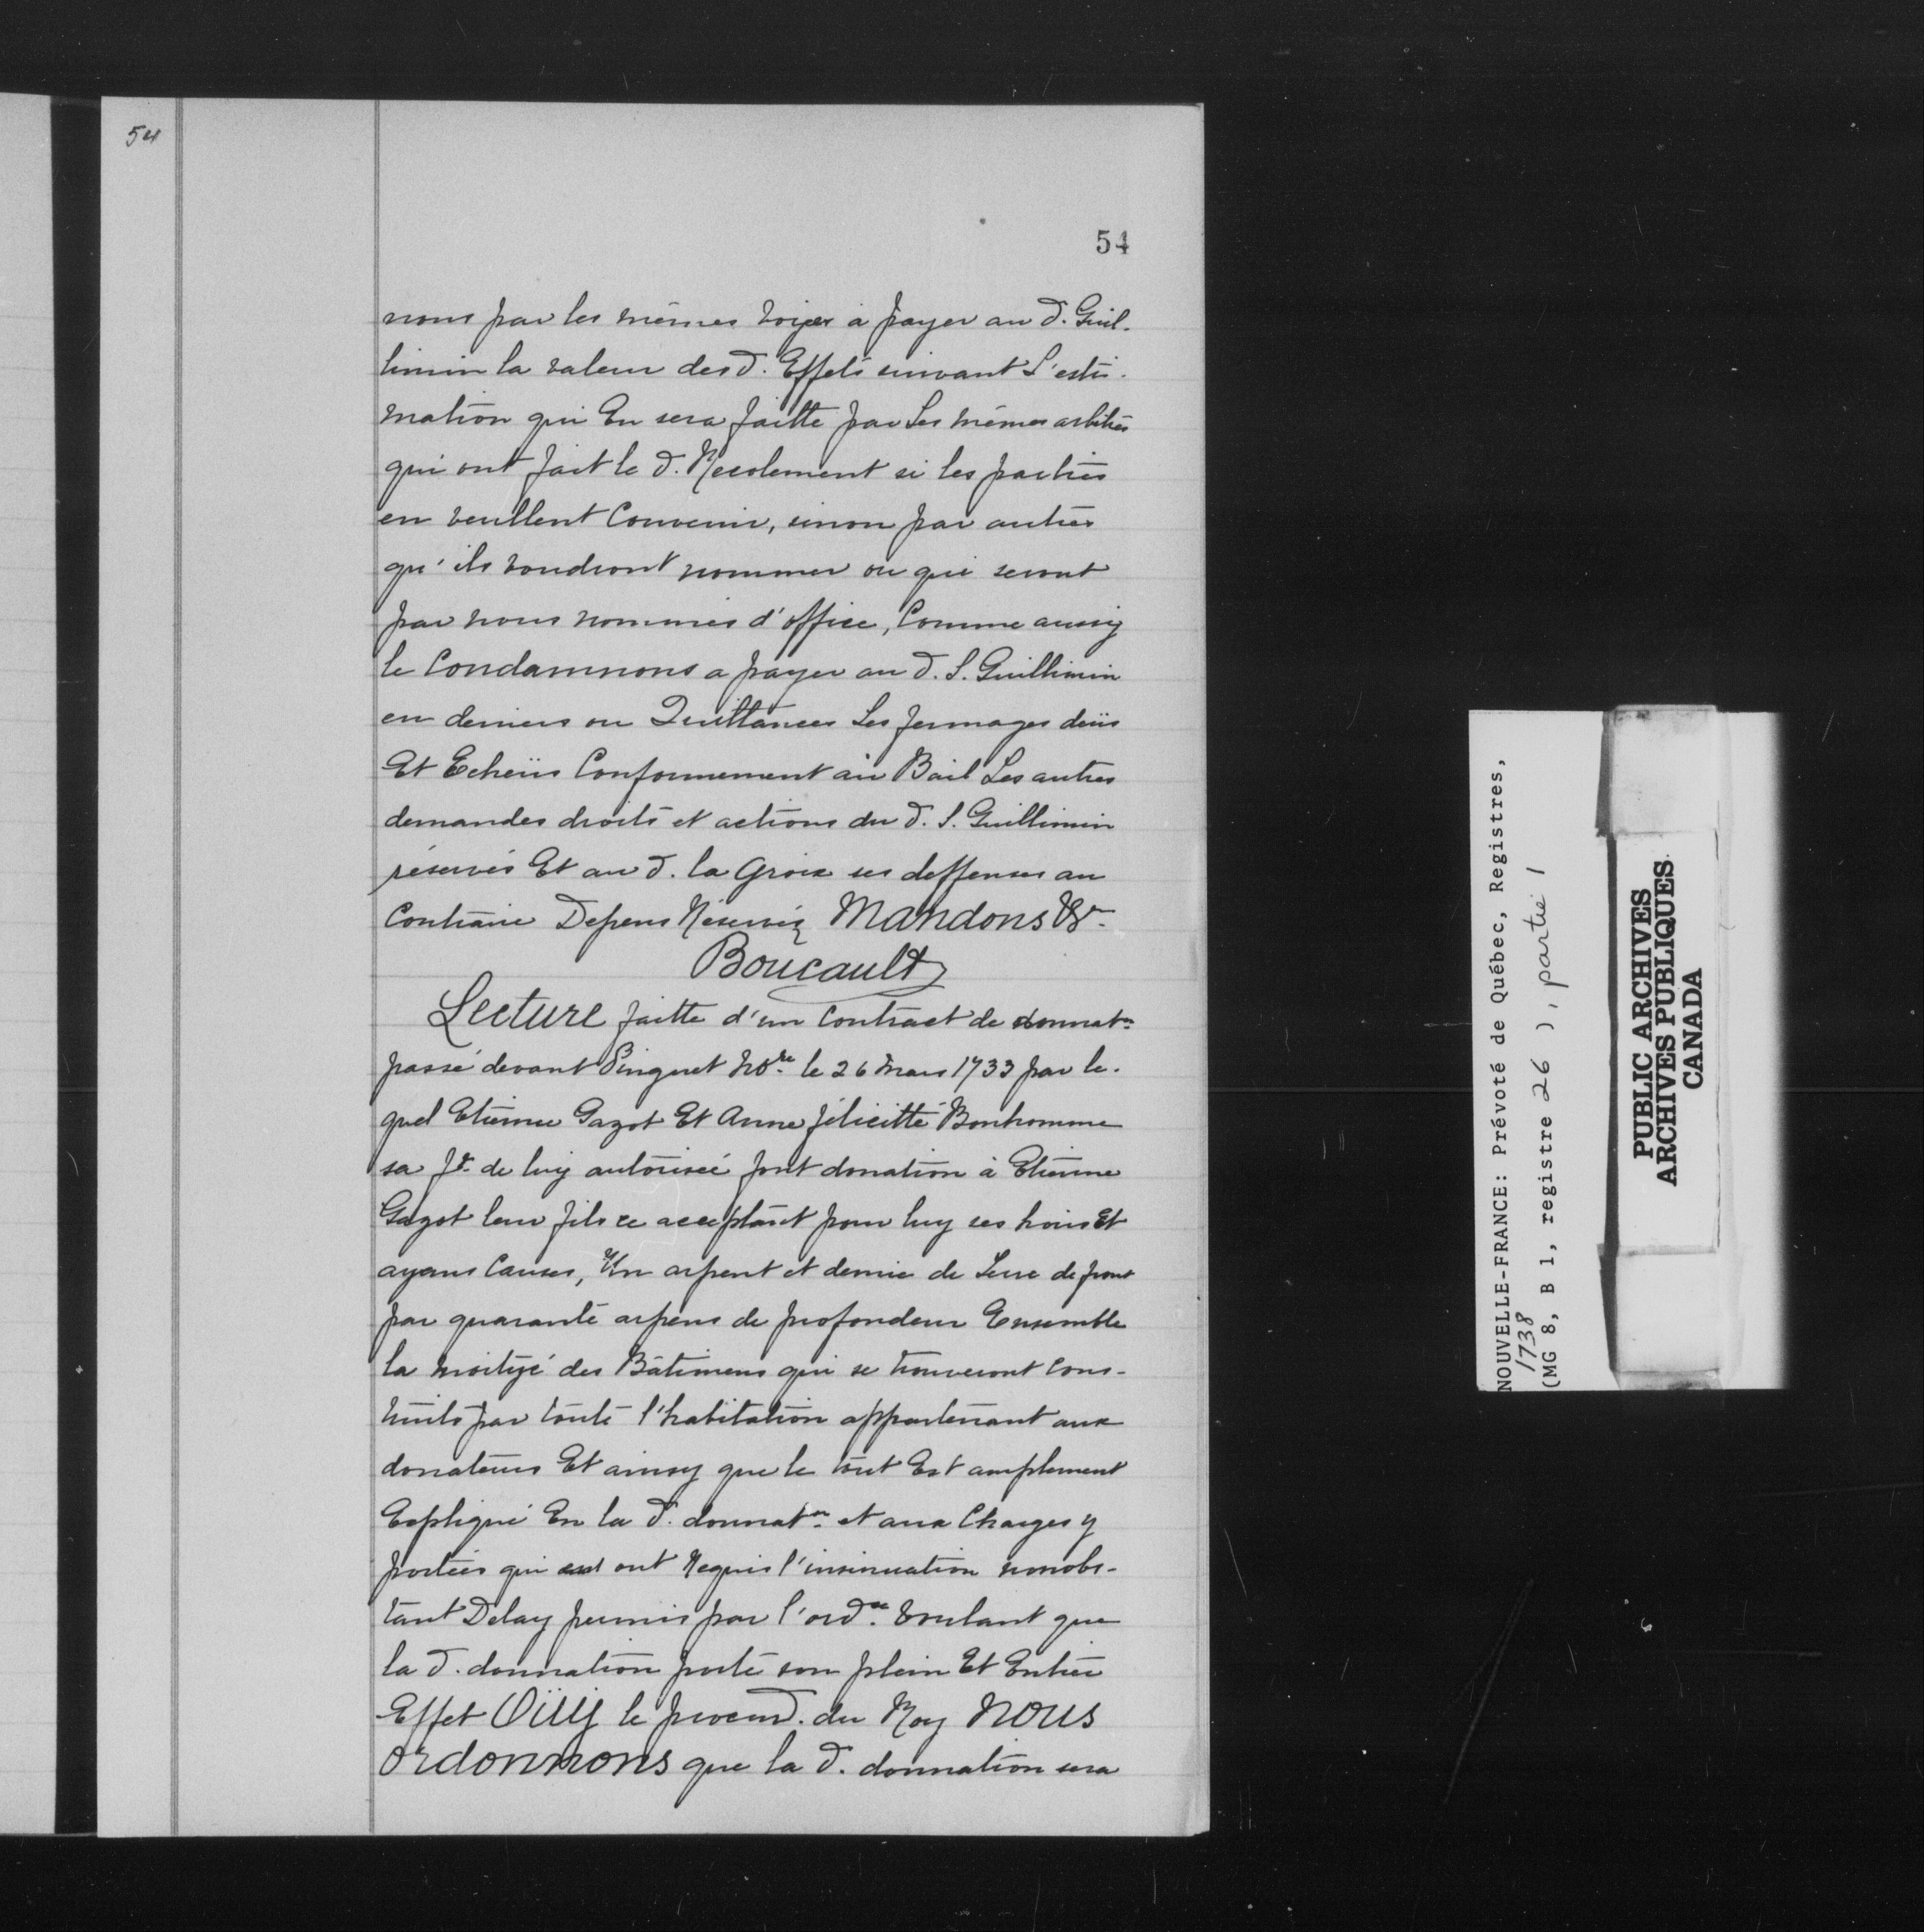 54
54
nous par les mêmes voyes a payer au d. Guil-
limin la valeur des d. Effets suivant L'esti-
mation qui En sera faitte par Les mêmes arbitres
qui ont fait le d. Recolement si les parties
en veullent Convenir, sinon par autres
qu'ils voudront nommer ou qui seront
par nous nommés d'office, Comme aussy
le Condamnons a payer au d. S. Guillimin
en deniers ou Quittances Les fermages deüs
Et Echeüs Conformement au Bail Les autres
demandes droits et actions du d. S. Guillimin
réservés Et au d. la Groix ses deffenses au
Contraire Depens Réservéz Mandons &r.
Boucault
Lecture faitte d'un Contract de donnat.on
passé devant Pinguet No.re le 26 mars 1733 par le-
quel Etienne Gazot Et Anne félicitté Bonhomme
sa fe. de luy autorisée font donation à Etienne
Gazot leur fils ce acceptant pour luy ses hoirs Et
ayans Causes, Un arpent et demie de Terre de front
par quarante arpens de profondeur Ensemble
la moityé des Bâtimens qui se trouveront Cons-
truits par toute l'habitation appartenant aux
donateurs Et ainsy que le tout Est amplement
Expliqué En la d. donnat.on et aux Charges y
portées qui ont Requis l'insinuation nonobs-
tant Delay permis par l'ord.ce voulant que
la d. donnation porte son plein Et Entier
Effet Oüy le procur.d du Roy Nous
ordonnons que la d. donnation sera
NOUVELLE-FRANCE: Prévoté de Québec, Registres,
1738
(MG 8, B 1, registre 26 ), partie 1
PUBLIC ARCHIVES
ARCHIVES PUBLIQUES
CANADA